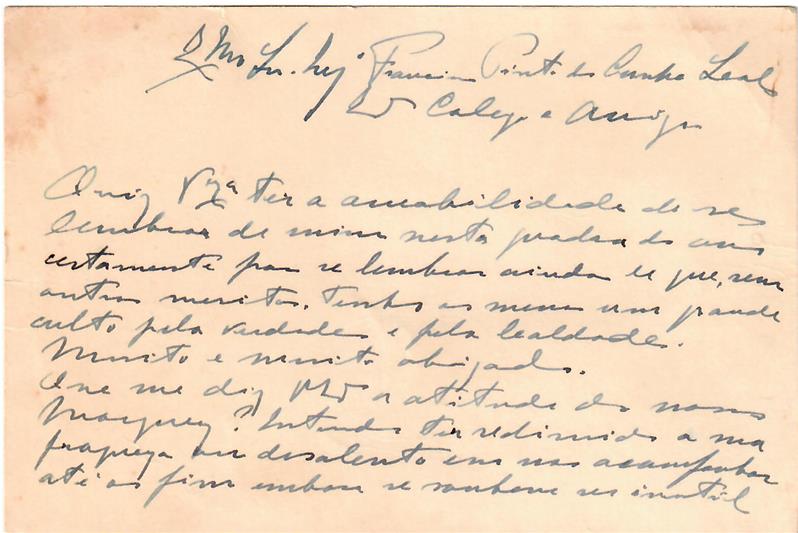 Exmo Sr. Engº Francisco Pinto da Cunha Leal
Colega e Amigo
Quiz V. Exª ter a amabilidade de se
lembrar de mim nesta quadra do ano
certamente por se lembrar ainda de que, sem
outros meritos, tenho ao menos um grande
culto pela verdade e pela lealdade.
Muito e muito obrigado.
Que me diz a atitude do nosso
Marques? Entendo ter redimido a sua
fraqueza ou desalento em nos acompanhar
até ao fim embora se soubesse ser inutil